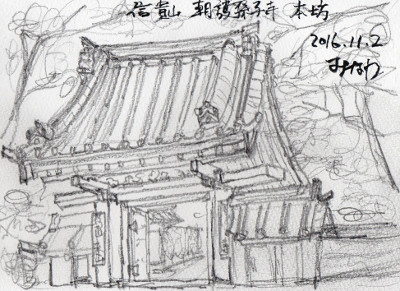 信貴山 朝護孫子寺 本坊
2016.11.2